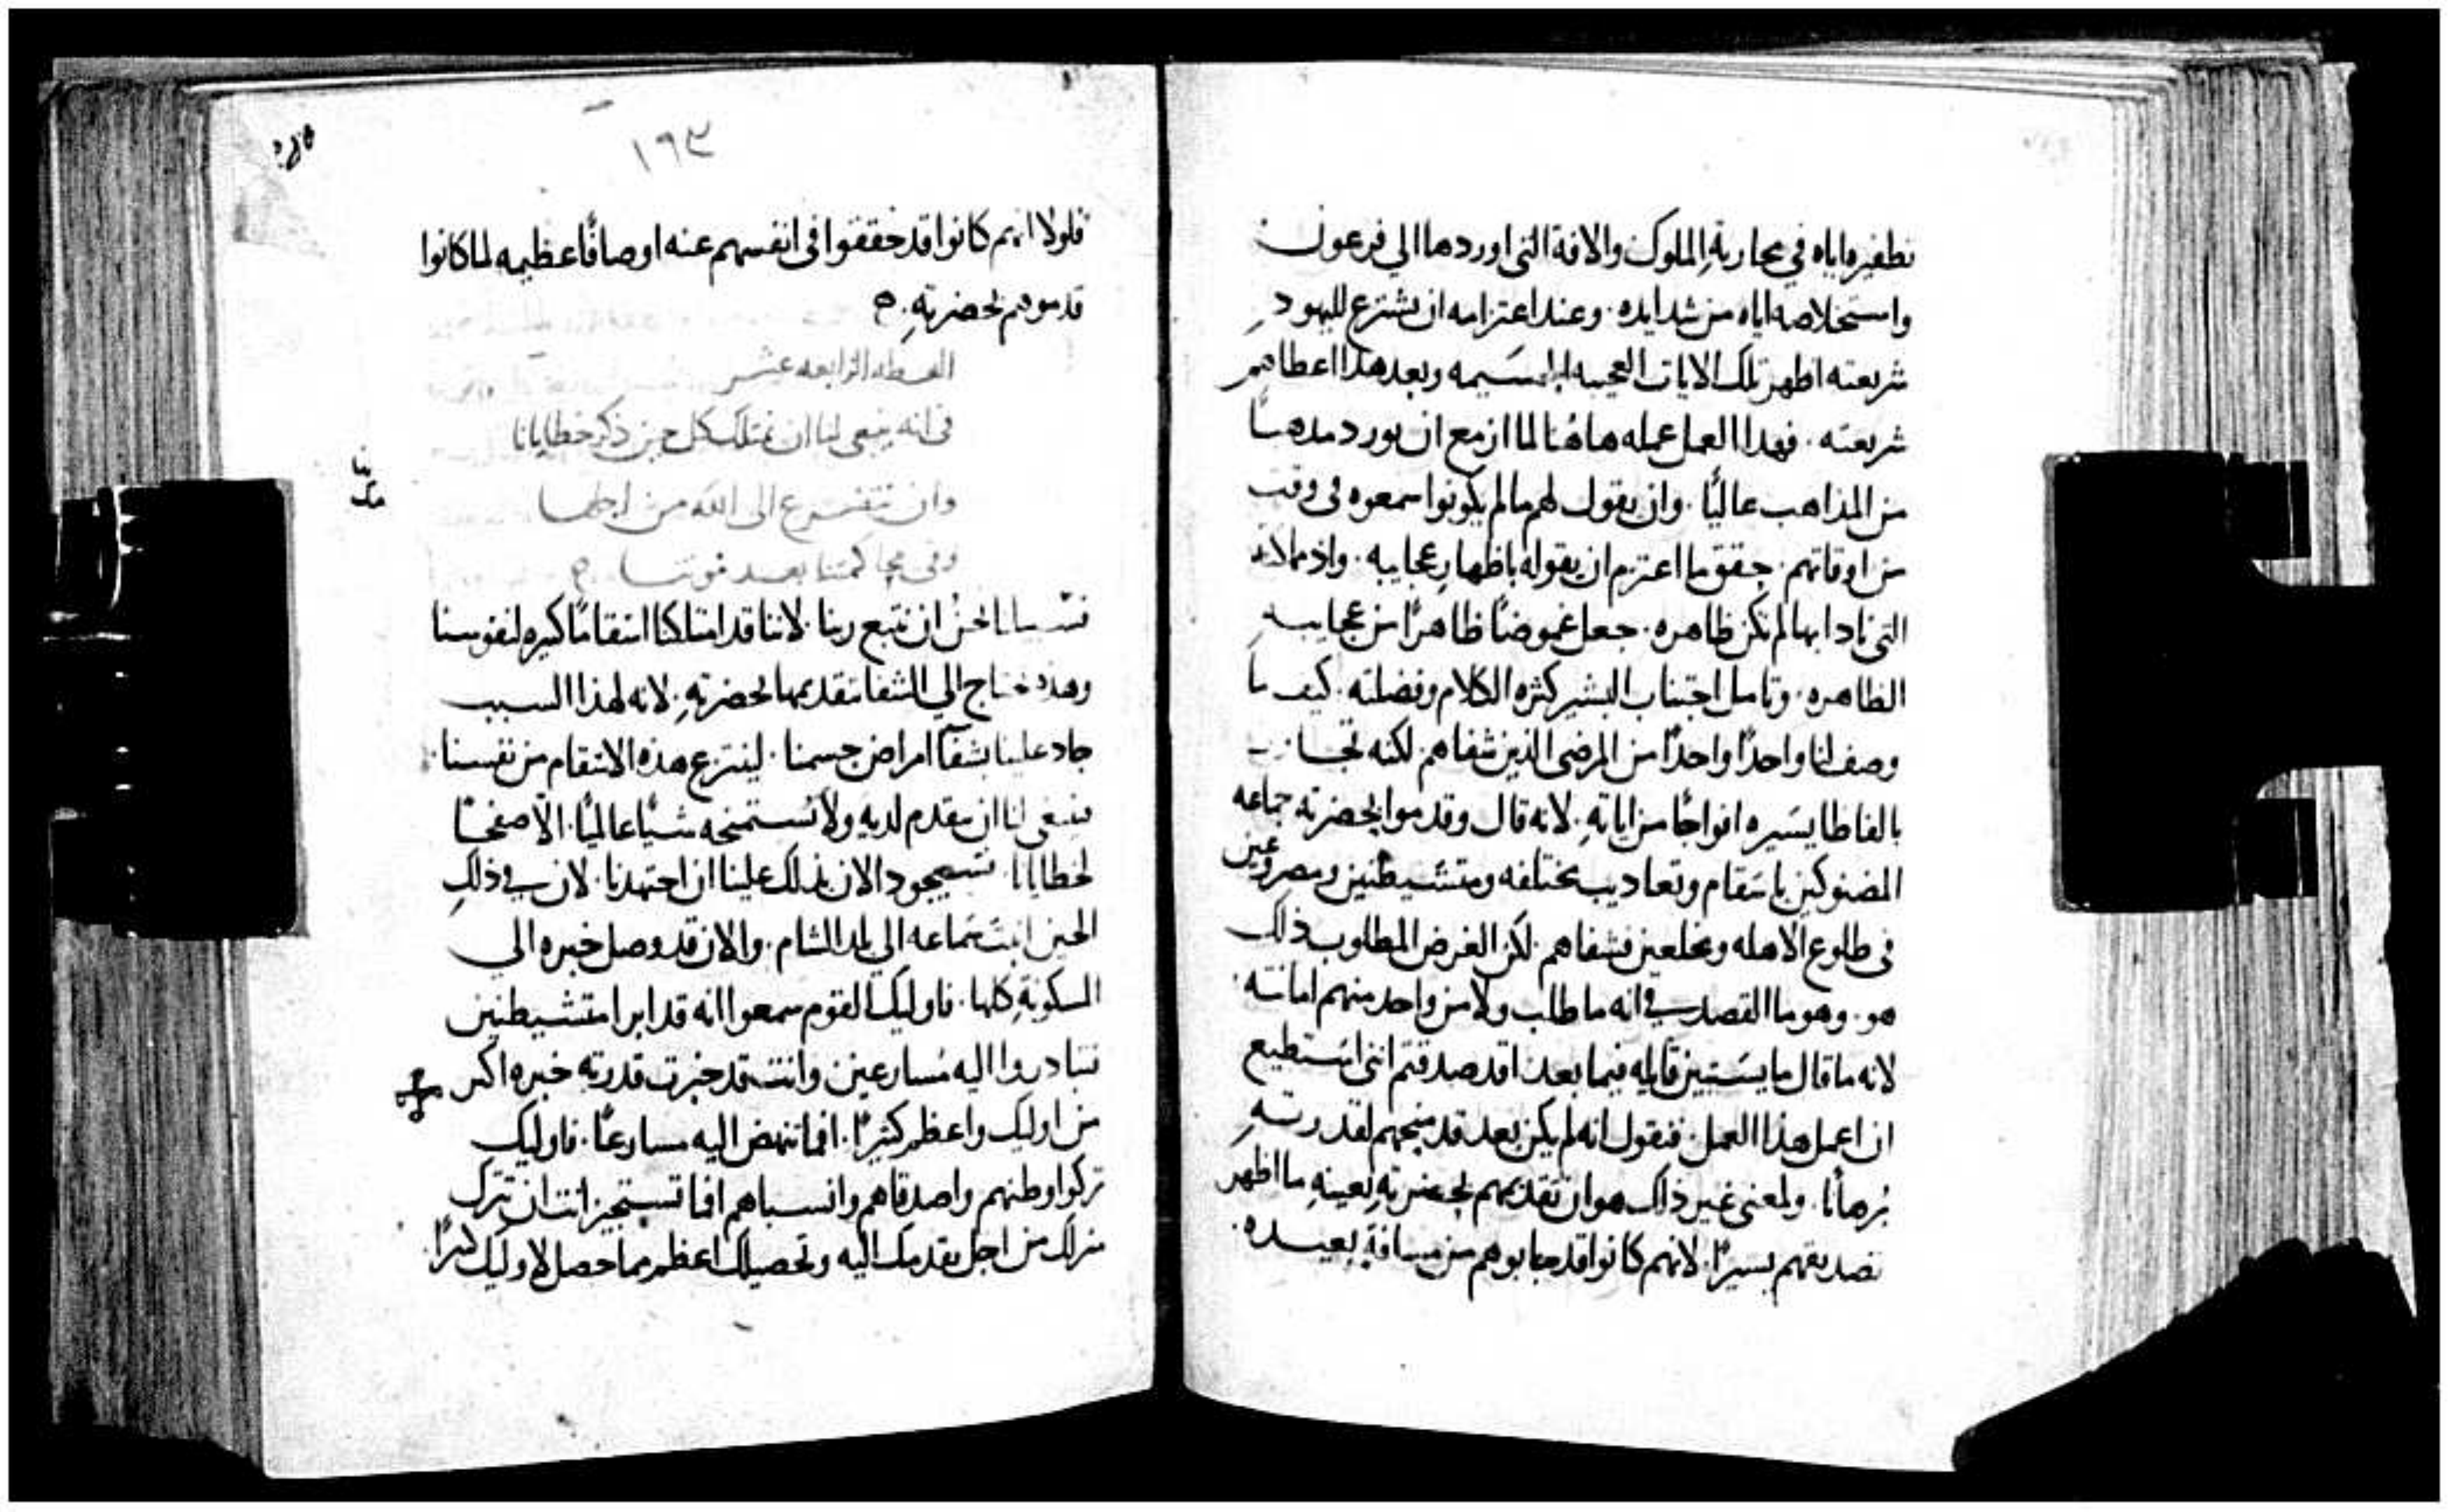 بظفيره اياه في محاربة الملوك والافة التي اوردها الي فرعون
واستخلاصه اياه من شدايده. وعند اعتزامه ان يشترع لليهود
شريعته اظهر تلك الايات العجيبه الجسيمه وبعد هذا اعطاهم
شريعته. فهدا العمل عمله هاهنا لما ازمع ان يورد مدهبا
من المذاهب عاليًا. وان يقول لهم ما لم يكونوا سمعوه في وقت
من اوقاتهم. حقق ما اعتزم ان يقوله باظهار عجايبه. واذ
التي نادا بها لم تكن ظاهره. جعل غموضًا ظاهرًا من عجايبه
الظاهره. وتامل اجتناب البشير كثره الكلام وفضلته. كيف ما
وصف لنا واحدًا واحدًا من المرضى الذين شفاهم. لكنه تجا
بالفاظ يسيره افواجًا من اياته. لانه قال وقدموا لحضرته جماعه
المضنوكين باسقام وتعاديب مختلفه ومتشيطنين ومصروعين
في طلوع الاهله ومخلعين فشفاهم. لكن الغرض المطلوب ذلك
هو. وهو ما القصد في انه ما طلب ولا من واحد منهم امانته.
لانه ما قال ما يستبين قايله فيما بعد اقد صدقتم انني استطيع
ان اعمل هذا العمل. فنقول انه لم يكن بعد قد منحهم لقدرته
برهانًا. ولمعنى غير ذلك هو ان تقديمهم لحضرته لعينه ما اظهر
تصديقهم يسيرًا. لانهم كانوا قد جابوهم من مسافة بعيده.
١٦٣
فلولا انهم كانوا قد حققوا في انفسهم عنه اوصافًا عظيمه لما كانوا
قدموهم لحضرته.
العظه الرابعه عشر
في انه ينبغي لنا ان نمتلك كل حين ذكر خطايانا
وان نتضرع الى الله من اجلها
وفي محاكمتنا بعد موتنا
فسبيلنا نحن ان نتبع ربنا. لاننا قد امتلكنا اسقامًا كثيره لنفوسنا
وهذه نحتاج الي الشفا بتقديمها لحضرته. لانه لهذا السبب
جاد علينا بشفآ امراض جسمنا. لينتزع هذه الاسقام من نفسنا.
فينبغي لنا ان نتقدم لديه ولا نستمنحه شيًا عاليًا. الا صفحًا
لخطايانا. فسيجود الان بذلك علينا ان اجتهدنا. لان في ذلك
الحين انبث سماعه الي بلد الشام. والان قد وصل خبره الي
المسكونة كلها. فاوليك القوم سمعوا انه قد ابرا متشيطنين
فتبادروا اليه مسارعين وانت قد خبرت قدرته خبره اكبر
من اوليك واعظم كثيرًا. افما تنهض اليه مسارعًا. فاوليك
تركوا اوطنهم واصدقاهم وانسباهم افما تستجيز انت ان تترك
منزلك من اجل تقدمك اليه وتحصيلك اعظم مما حصل لاوليك كثيرًا.